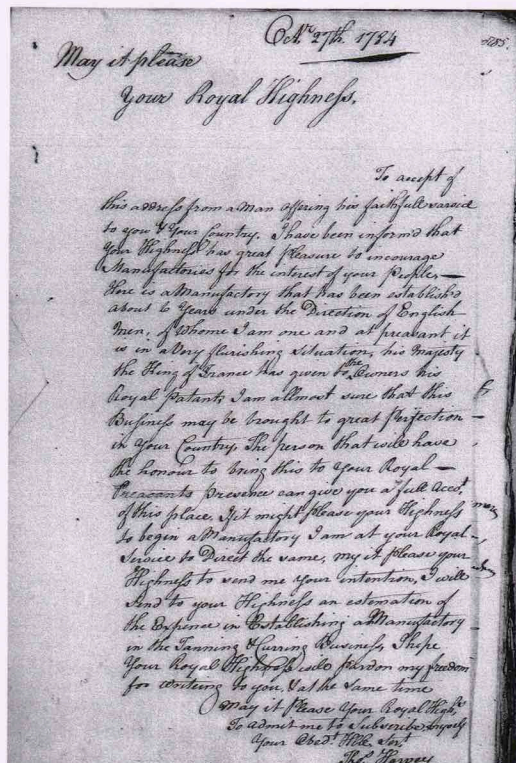 Octr. 27th. 1784
285.
May it please
Your Royal Highness.
To accept of
this address from a Man offering his faithfull sarvice
to you & Your Country. I have been informd that
Your Highness has great pleasure to incourage
Manufactories for the interest of your people, —
Here is a Manufactory that has been establish'd
about 6 Years under the Direction of English
Men, of whome I am one and at preasant it
is in a Very flurishing Situation, his Majesty
the King of France has given to the Owners his
Royal Patant, I am allmost sure that this
Business may be brought to great Perfection —
in Your Country. The person that will have
the honour to bring this to Your Royal —
Preasants presence can give you a full Acct.
of this place, If it might please your Highness
to begin a Manufactory I am at your Royal —
Service to Direct the same, my it please your
Highness to send me your intention, I will
Send to your Highness an estemation of
the Expence in Establishing a Manufactory —
in the Tanning & Curring Business, I hope
Your Royal Highness will pardon my freedom
for writing to you, & at the same time
May it Please Your Royal Highs.
To admit me to Subscribe myself
Your Obedt. Hble Servt.
Thos. Harvey